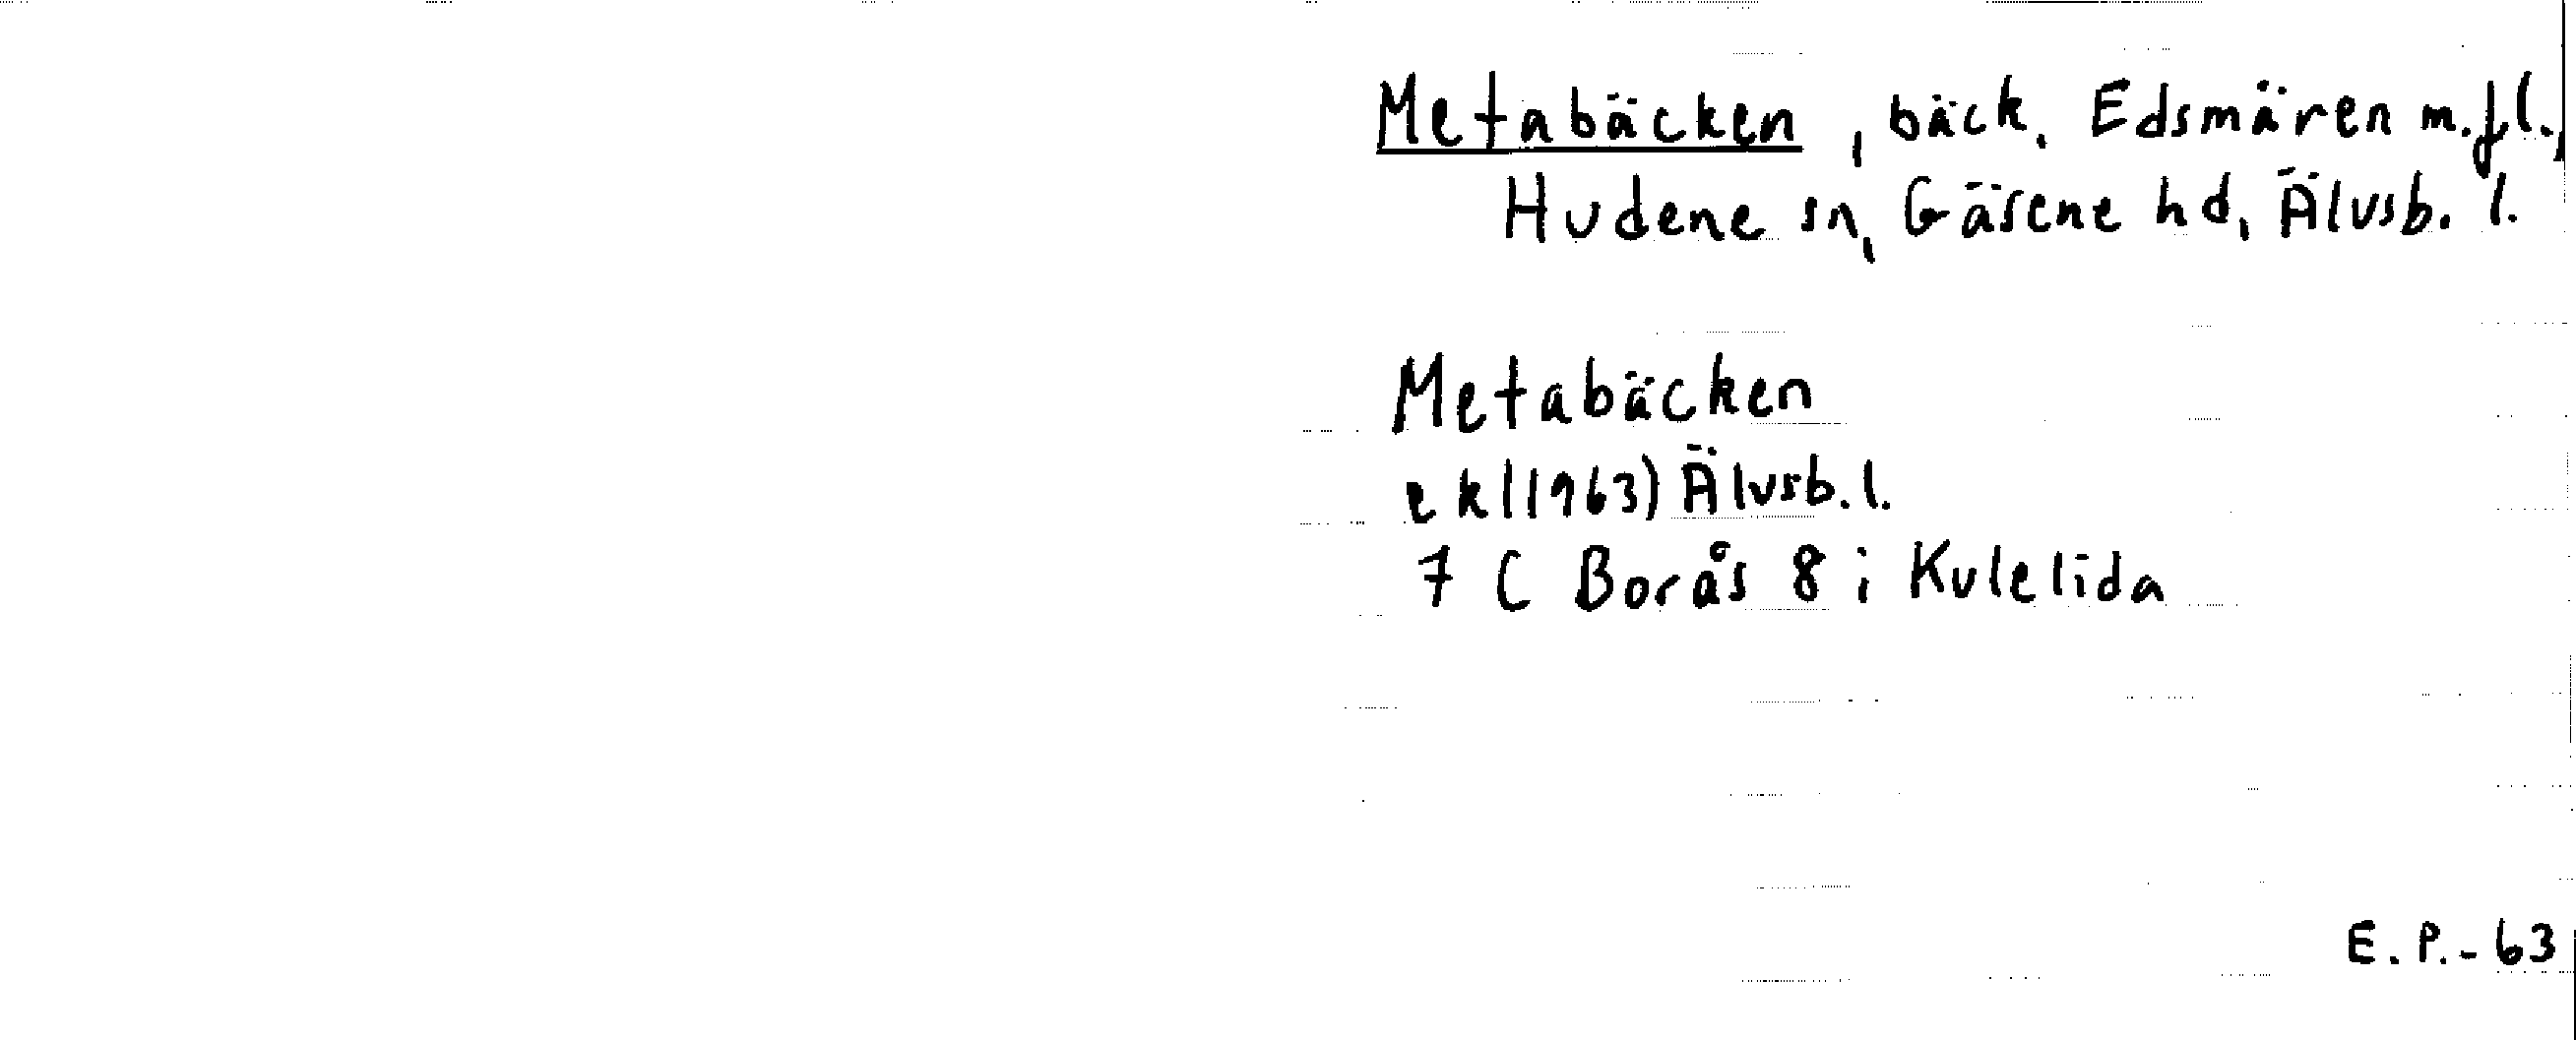 Metabäcken, bäck. Edsmären m.fl.,
Hudene sn, Gäsene hd, Älvsb. l.
Metabäcken
ek (1963) Älvsb. l.
7 C Borås 8 i Kulelida
E.P.-63